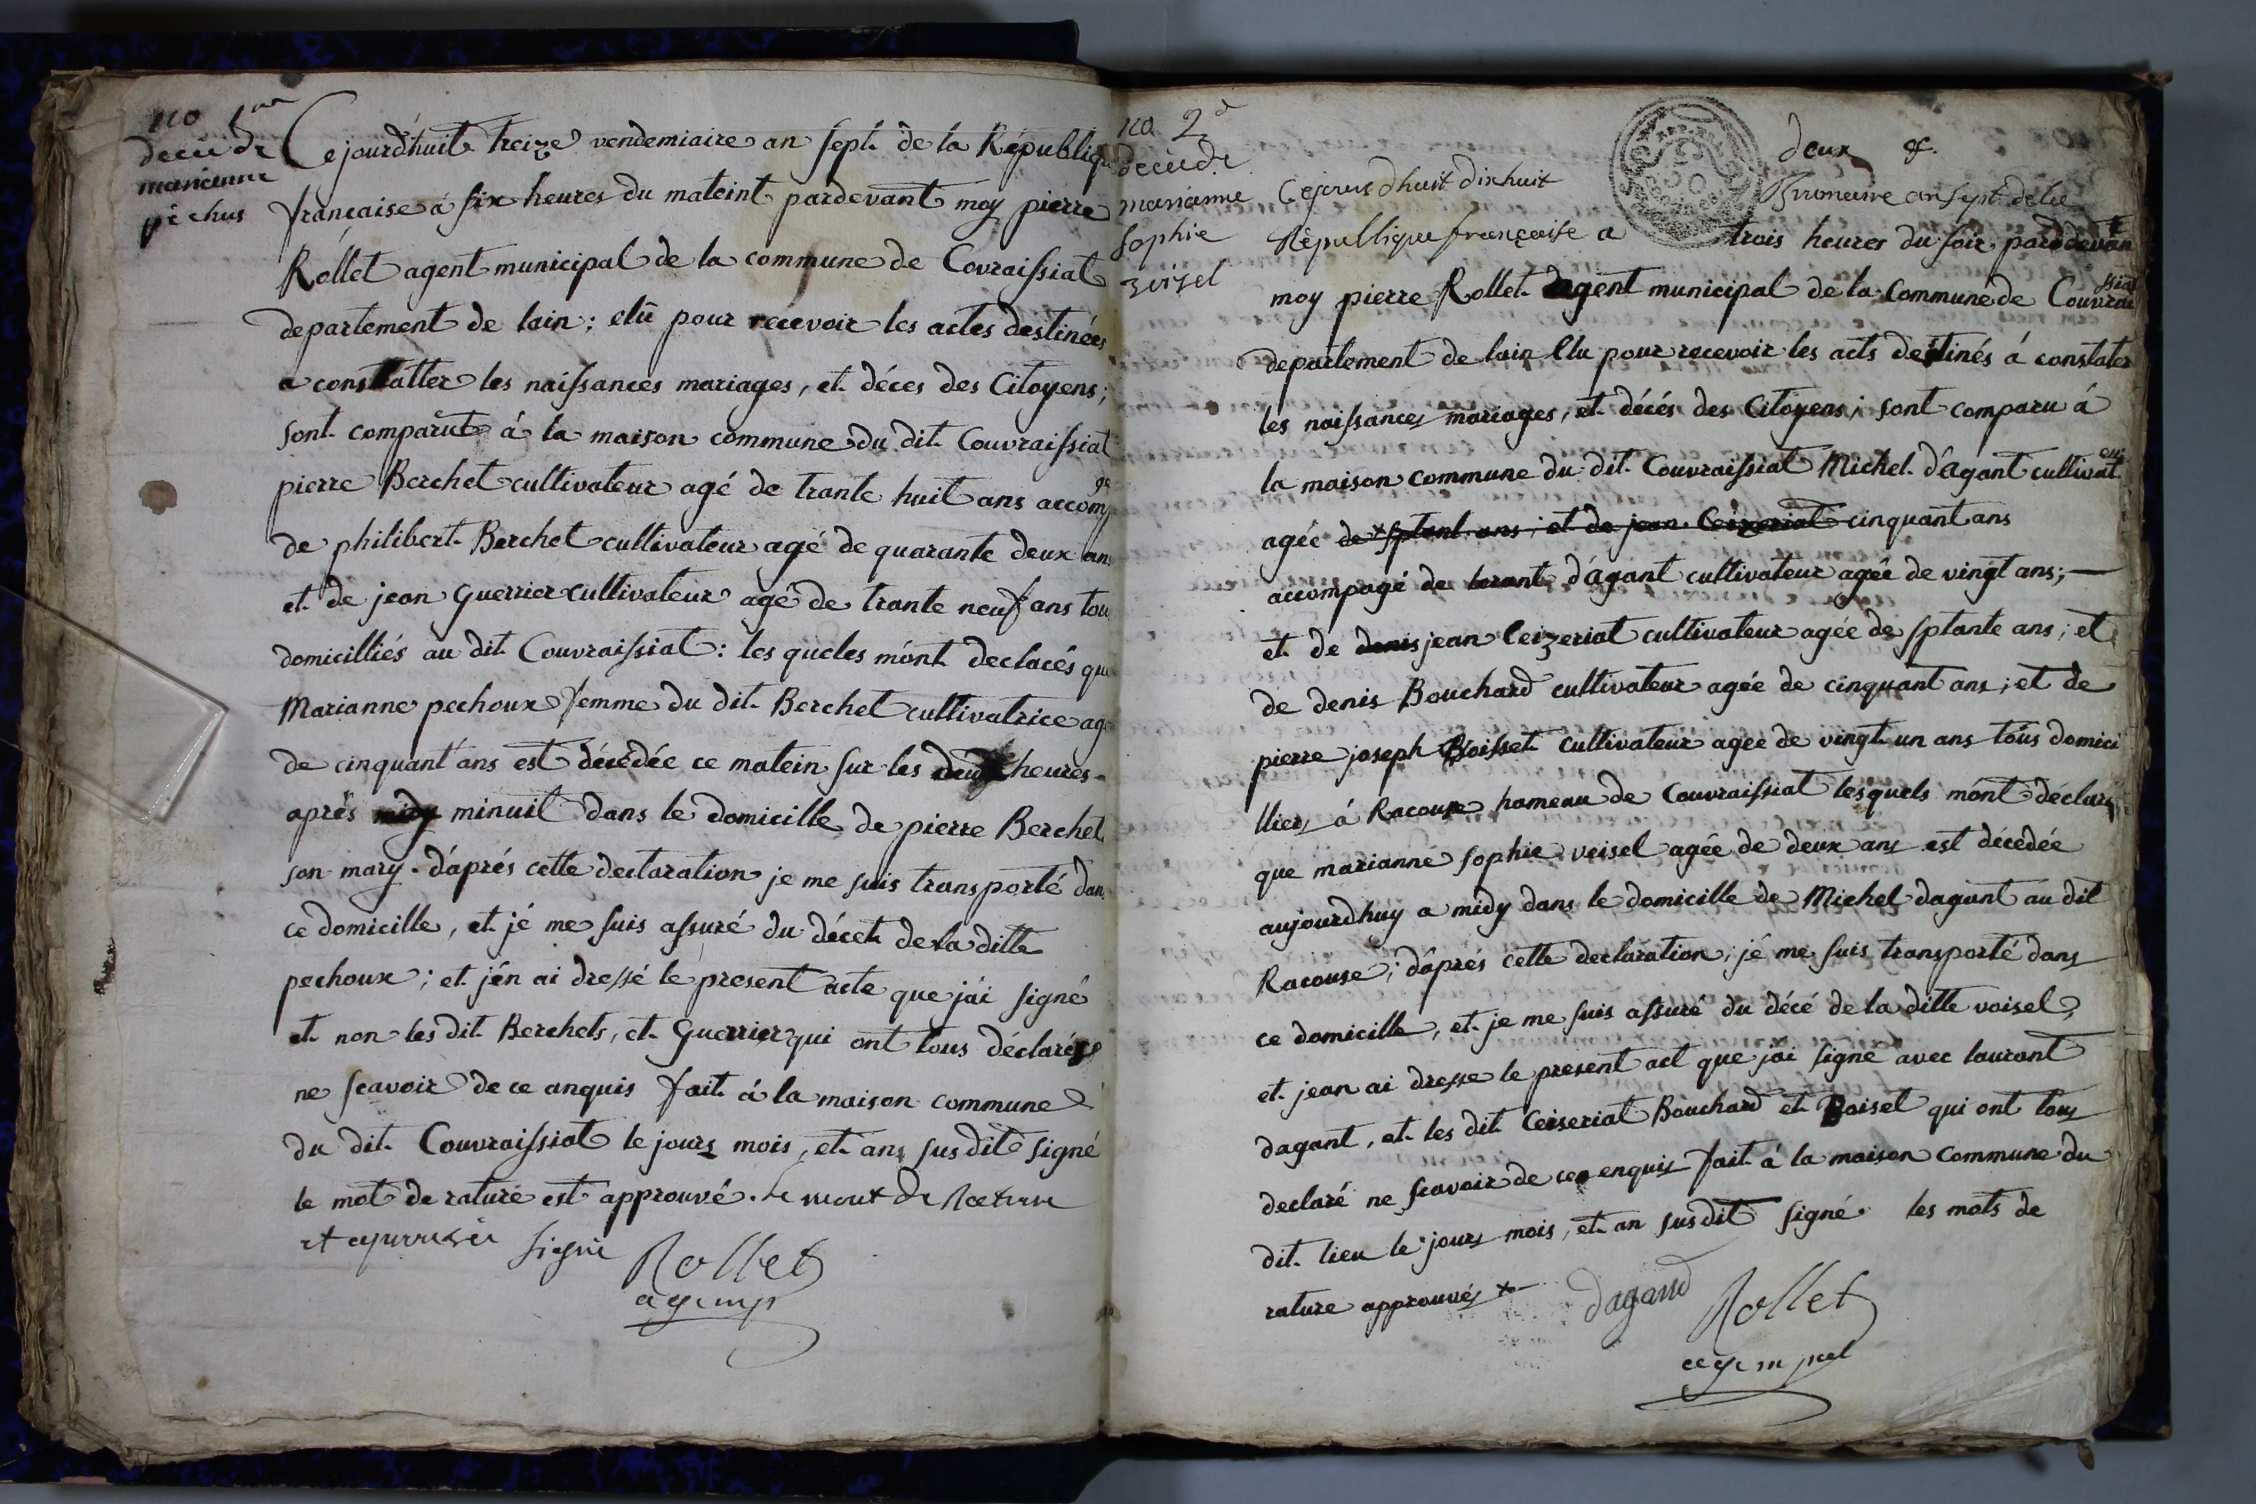 no 1er
décé de
marianne
péchus
Cejourdhuit treize vendemiaire an sept de la République
française á six heures du mateint pardevant moy pierre
Rollet agent municipal de la commune de Covraissiat
departement de lain ; elû pour recevoir les actes destinées
a constatter les naissances mariages, et déces des Citoyens ;
sont comparut á la maison commune du dit Couvraissiat
pierre Berchet cultivateur agé de trante huit ans accompgé
de philibert Berchet cultivateur agé de quarante deux ans
et de jean Guerrier cultivateur agé de trante neuf ans tou
domicilliés au dit Couvraissiat : les queles mónt declarés que
Marianne pechoux femme du dit Berchet cultivatrice agé
de cinquant ans est décédée ce matein sur les deux heures
aprés midy minuit dans le domicille de pierre Berchet
son mary. d'áprés cette declaration je me suis transporté dan
ce domicille, et jé me suis assuré du décet de la ditte
pechoux ; et jén ai dressé le present acte que jái signé
et non les dit Berchets, et Guerrier qui ont tous déclarés
ne scavoir de ce anquis fait á la maison commune
du dit Couvraissiat le jours mois, et ans susdit signé
le mot de raturé est approuvé. le mout de Rature
et appruvée signé Rollet
agt mp
no 2d
décé de
marianne
sophie
voizel
deux
Cejours dhuit dixhuit Brumaire an sept de la
République françoise a trois heures du soir pardevan
moy pierre Rollet agent municipal de la Commune de Couvraissiat
departement de lain Elu pour recevoir les acts destinés á constater
les naissances mariages, et décés des Citoyens ; sont comparu á
la maison commune du dit Couvraissiat Michel dágant cultivateur
agée de sptant ans ; et de jean Ceizeriat cinquant ans
accompagé de lorant dágant cultivateur agée de vingt ans ;
et de denis jean Ceizeriat cultivateur agée de sptante ans ; et
de denis Bouchard cultivateur agée de cinquant ans ; et de
pierre joseph Boisset cultivateur agée de vingt un ans tous domici
lliers á Racouse hameau de Couvraissiat lesquels mónt déclarés
que marianne sophie voisel agée de deux ans est décédée
aujourdhuy a midy dans le domicille de Michel dagant au dit
Racouse ; dáprés cette declaration ; jé me suis transporté dans
ce domicille, et je me suis assuré du décé de la ditte voisel,
et jean ai dresse le present act que jai signé avec laurant
dagant, et les dit Ceiseriat Bouchard et Boisel qui ont tous
declaré ne scavoir de ce enquis fait á la maison Commune du
dit lieu le jours mois, et an susdit signé les mots de
rature approuvés
dagand Rollet
agt mpal